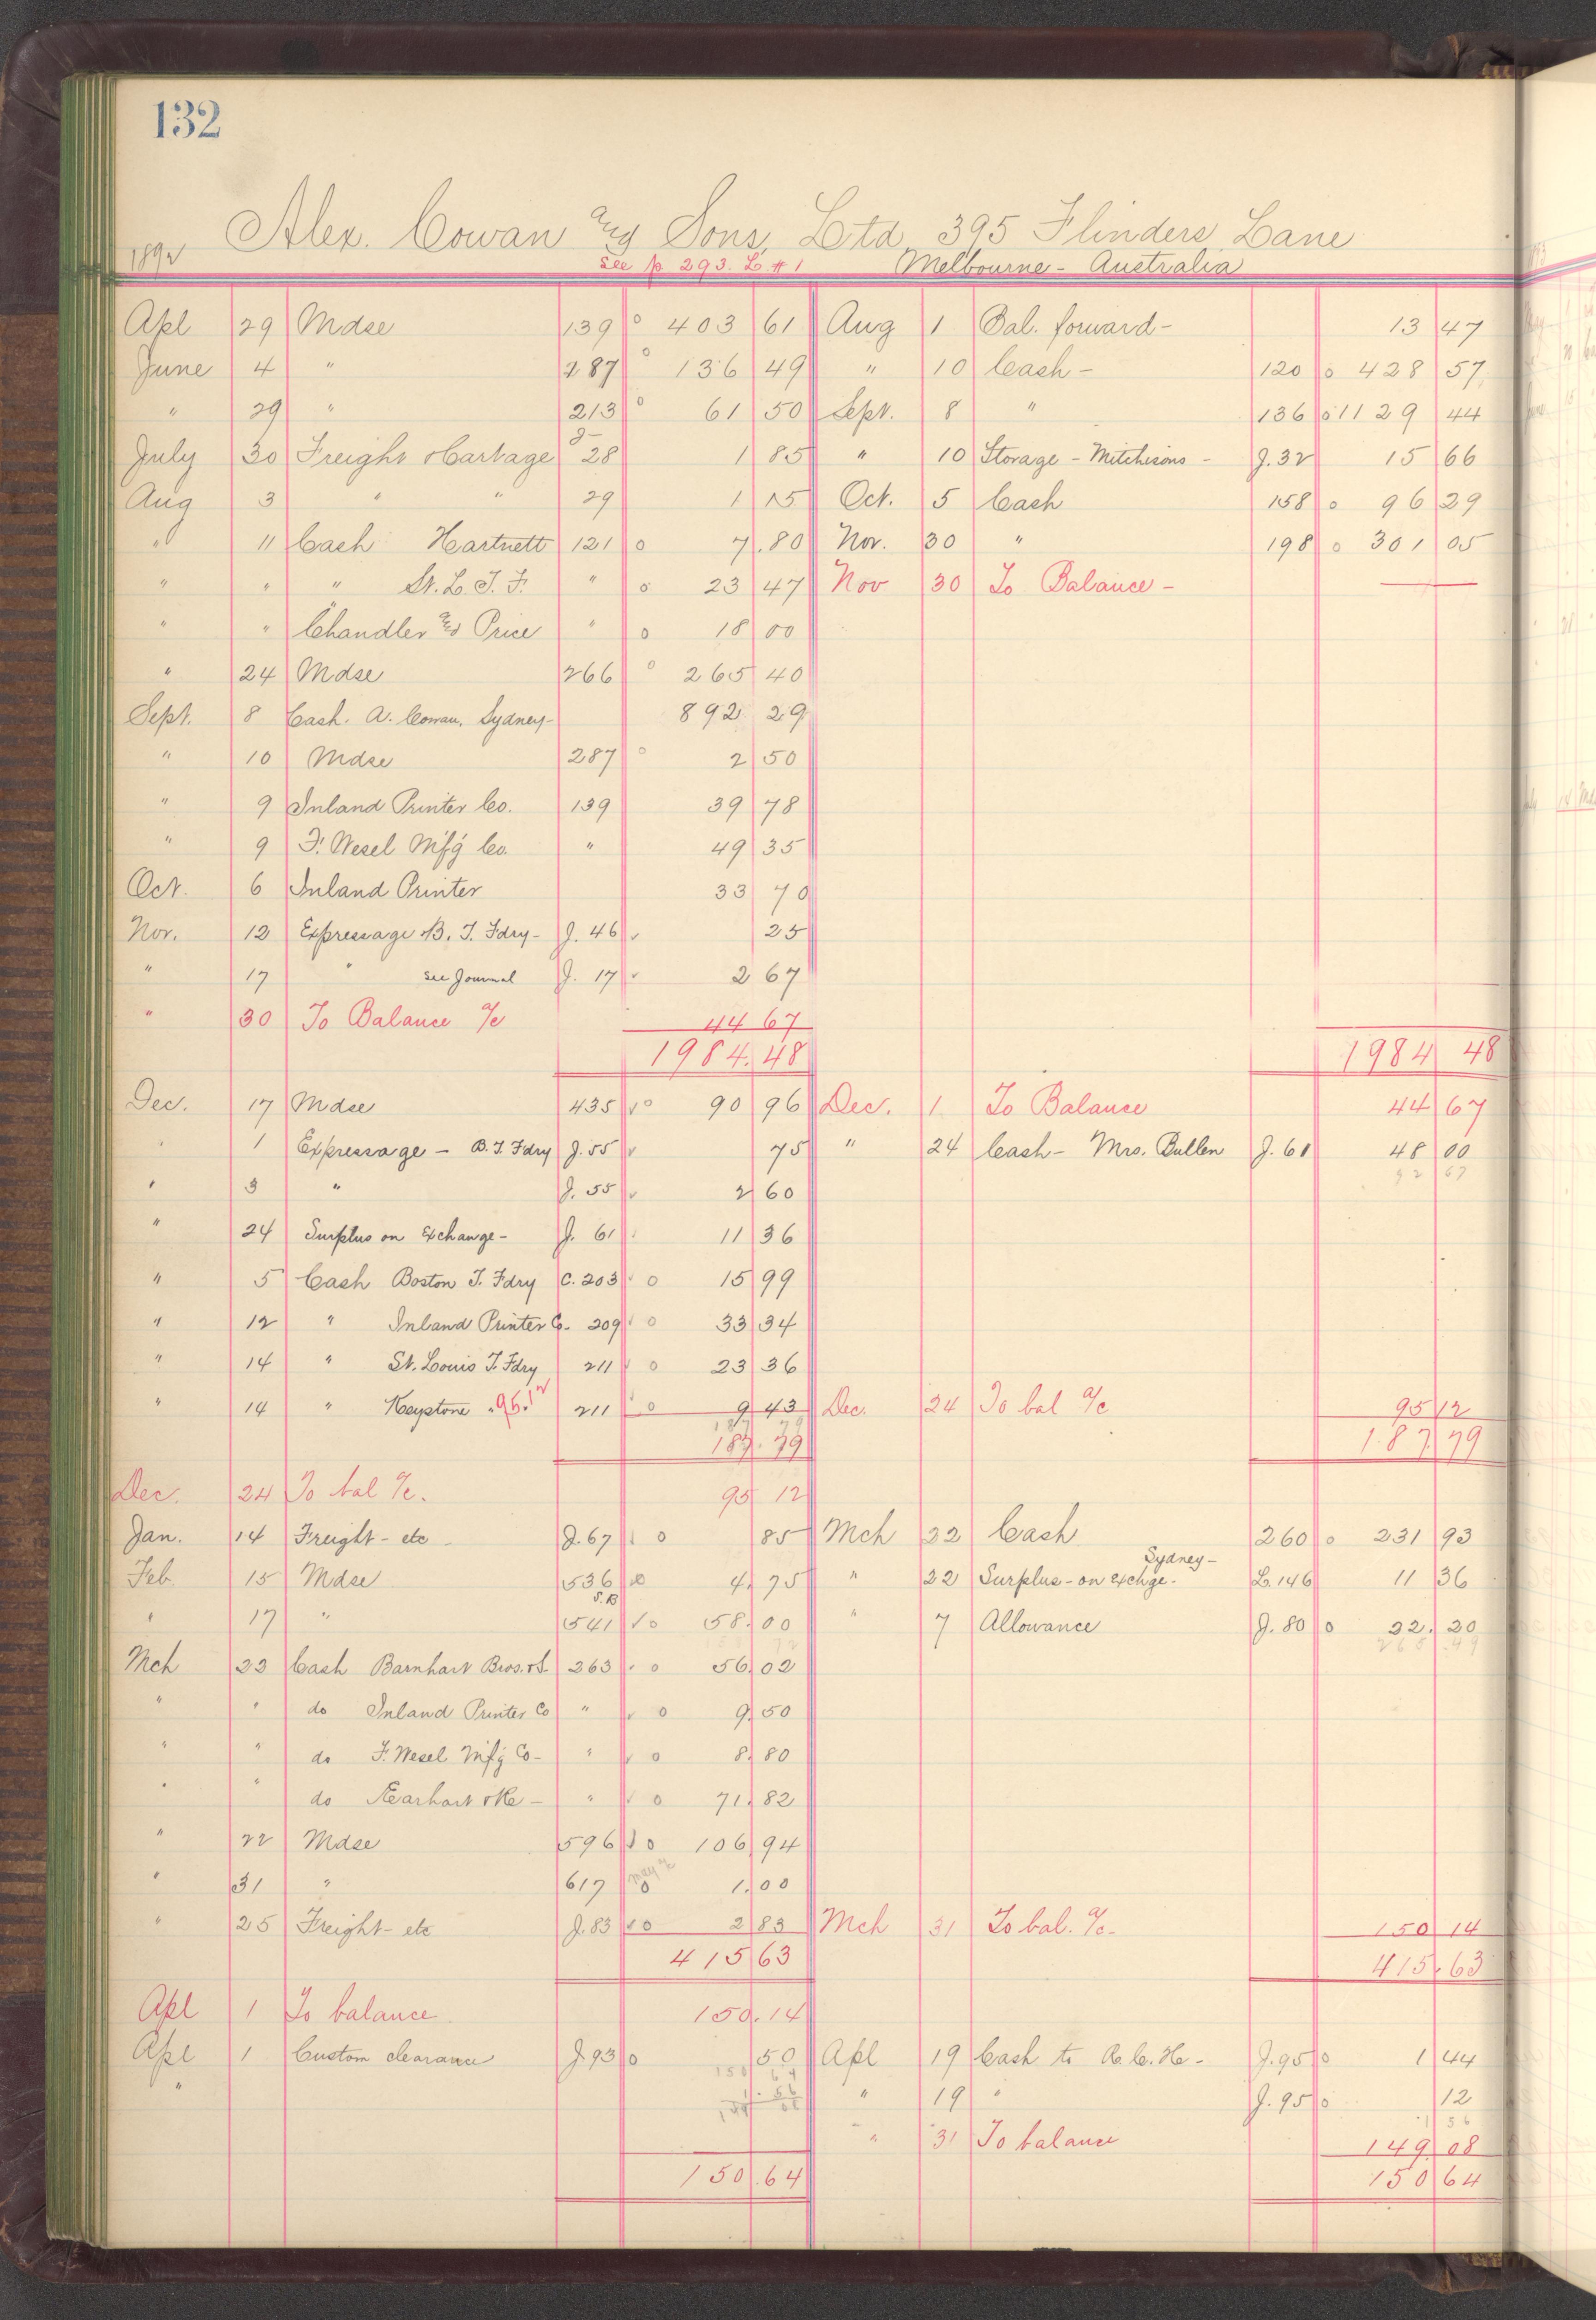 132
Alex. Cowan and Sons, Ltd 395 Flinders Lane
1892 See p 293. L. #1 Melbourne - Australia
Apl 29 Mdse 139 o 403 61 Aug 1 Bal. forward - 13 47
June 4 " 287 o 136 49 " 10 Cash - 120 o 428 57
" 29 " 213 o 61 50 Sept. 8 " 136 o 1129 44
July 30 Freight & Cartage J- 28 1 85 " 10 Storage - Mitchisons - J. 32 15 66
Aug 3 " " 29 1 15 Oct. 5 Cash 158 o 96 29
" 11 Cash Hartnett 121 o 7.80 Nov. 30 " 198 o 301 05
" " " St. L. T. F. " o 23 47 Nov 30 To Balance -
" " Chandler & Price " o 18 00
" 24 Mdse 266 o 265 40
Sept. 8 Cash. A. Cowan, Sydney - 892 29
" 10 Mdse 287 o 2 50
" 9 Inland Printer Co. 139 39 78
" 9 F. Wesel Mfg Co. " 49 35
Oct. 6 Inland Printer 33 70
Nov. 12 Expressage B. T. Fdry - J. 46 25
" 17 " see Journal J. 17 2 67
" 30 To Balance a/c 44 67
1984.48 1984 48
Dec. 17 Mdse 435 o 90 96 Dec. 1 To Balance 44 67
" 1 Expressage - B. T. Fdry J. 55 75 " 24 Cash - Mrs. Bullen J. 61 48 00
92 67
" 3 " J. 55 2 60
" 24 Surplus on Exchange - J. 61 11 36
" 5 Cash Boston T. Fdry C. 203 o 15 99
" 12 " Inland Printer Co - 209 o 33 34
" 14 " St. Louis T. Fdry 211 o 23 36
" 14 " Keystone 95.12 211 o 9 43 Dec. 24 To bal a/c 95 12
187.79 187 79
Dec. 24 To bal a/c. 95 12
Jan. 14 Freight - etc - J. 67 o 85 Mch 22 Cash 260 o 231 93
Feb 15 Mdse 536 o 4 75 " 22 Surplus - on exchge - Sydney - L. 146 11 36
" 17 " S.B 541 o 58.00 " 7 Allowance J. 80 o 22.20
265.49
Mch 23 Cash Barnhart Bros. & S. 263 o 56 02
" " do Inland Printer Co " o 9.50
" " do F. Wesel Mfg Co - " o 8.80
" " do - " o 71.82
" 22 Mdse 596 o 106 94
" 31 " 617 o 1.00
" 25 Freight - etc J. 83 o 2 83 Mch 31 To bal. a/c - 150 14
415 63 415.63
Apl 1 To balance 150.14
Apl 1 Custom clearance J. 93 o 50 Apl 19 Cash to J. 95 o 1 44
" 150 64 " 19 " J. 95 o 12
1.56 1 56
149 08 " 31 To balance 149 08
150.64 150 64